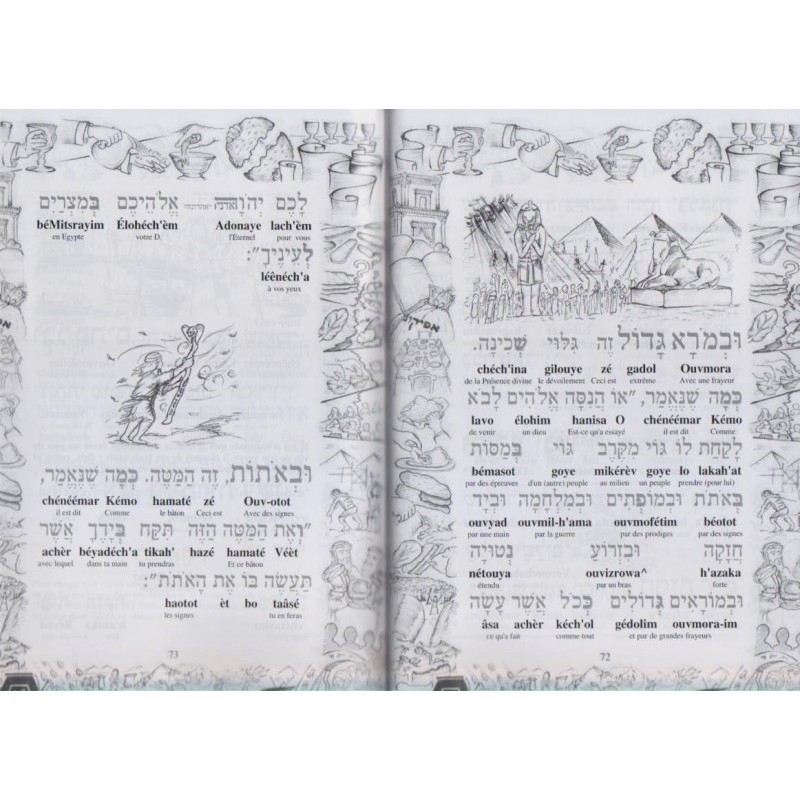 וּבְמֹרָא גָּדוֹל זֶה גִּלּוּי שְׁכִינָה.
chéch'ina gilouye zé gadol Ouvmora
de la Présence divine le dévoilement Ceci est extrême Avec une frayeur
כְּמָה שֶׁנֶּאֱמַר, "אוֹ הֲנִסָּה אֱלֹהִים לָבֹא
lavo élohim hanisa O chénéémar Kémo
de venir un dieu Est-ce qu'a essayé il est dit Comme
לָקַחַת לוֹ גוֹי מִקֶּרֶב גּוֹי בְּמַסּוֹת
bémasot goye mikérèv goye lo lakah'at
par des épreuves d'un (autre) peuple au milieu un peuple prendre (pour lui)
בְּאֹתֹת וּבְמוֹפְתִים וּבְמִלְחָמָה וּבְיָד
ouvyad ouvmil-h'ama ouvmofétim béotot
par une main par la guerre par des prodiges par des signes
חֲזָקָה וּבִזְרוֹעַ נְטוּיָה
nétouya ouvizrowa^ h'azaka
étendu par un bras forte
וּבְמוֹרָאִים גְּדוֹלִים כְּכֹל אֲשֶׁר עָשָׂה
âsa achèr kéch'ol gédolim ouvmora-im
ce qu'a fait comme tout et par de grandes frayeurs
72
לָכֶם יְהֹוָה אֱלֹהֵיכֶם בְּמִצְרַיִם
béMitsrayim Élohéch'èm Adonaye lach'èm
en Egypte votre D. l'Eternel pour vous
לְעֵינֶיךָ":
léênéch'a
à vos yeux
וּבְאֹתוֹת, זֶה הַמַּטֶּה. כְּמָה שֶׁנֶּאֱמַר,
chénéémar Kémo hamaté zé Ouv-otot
il est dit Comme le bâton Ceci est Avec des signes
"וְאֶת הַמַּטֶּה הַזֶּה תִּקַּח בְּיָדֶךָ אֲשֶׁר
achèr béyadéch'a tikah' hazé hamaté Véèt
avec lequel dans ta main tu prendras Et ce bâton
תַּעֲשֶׂה בּוֹ אֶת הָאֹתֹת":
haotot èt bo taâsé
les signes tu en feras
73